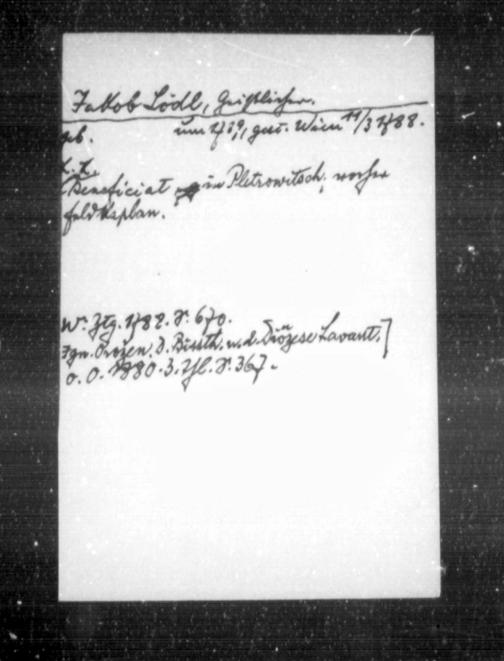 Jakob Lödl, Geistlicher.
geb. um 1739, gest. Wien 11/3 1788.
k. k.
Beneficiat in Pletrowitsch, vorher
Feldkaplan.
W. Ztg. 1788. S. 670.
Ign. Orožen, D. Bisth. u. d. Diözese Lavant,]
o. O. 1880. 3. Thl. S. 367.